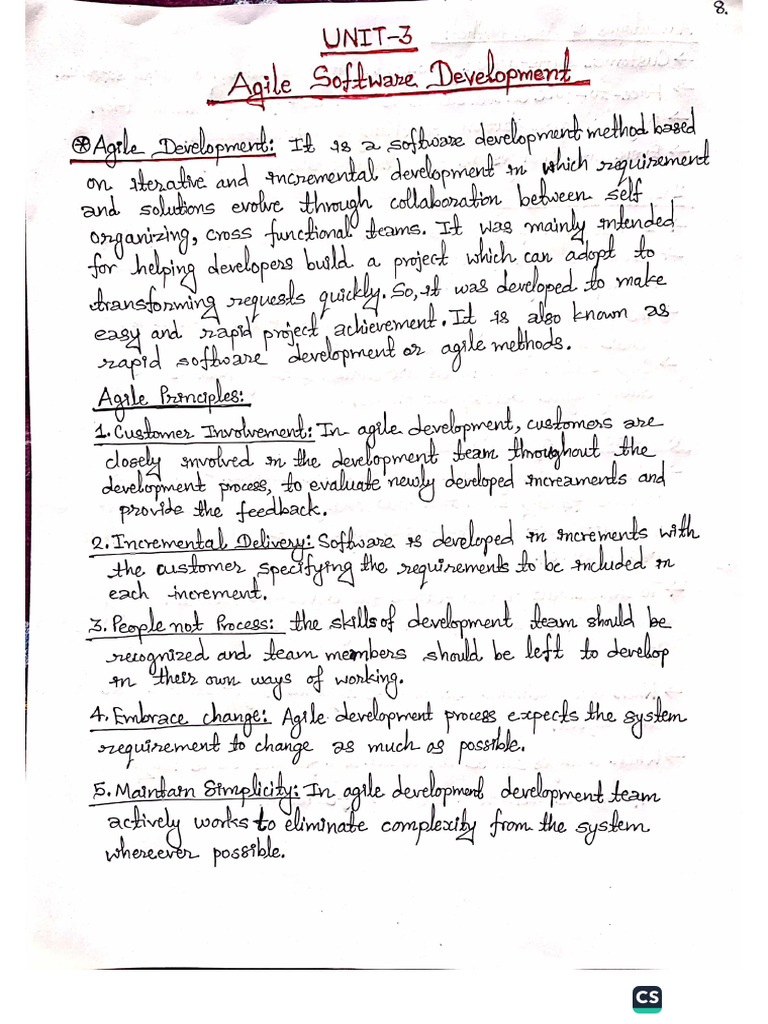 8.
UNIT-3
Agile Software Development
⊛Agile Development: It is a software development method based
on iterative and incremental development in which requirement
and solutions evolve through collaboration between self
organizing, cross functional teams. It was mainly intended
for helping developers build a project which can adopt to
transforming requests quickly. So, it was developed to make
easy and rapid project achievement. It is also known as
rapid software development or agile methods.
Agile Principles:
1. Customer Involvement: In agile development, customers are
closely involved in the development team throughout the
development process, to evaluate newly developed increaments and
provide the feedback.
2. Incremental Delivery: Software is developed in increments with
the customer specifying the requirements to be included in
each increment.
3. People not Process: the skills of development team should be
recognized and team members should be left to develop
in their own ways of working.
4. Embrace change: Agile development process expects the system
requirement to change as much as possible.
5. Maintain Simplicity: In agile development development team
actively works to eliminate complexity from the system
whereever possible.
CS